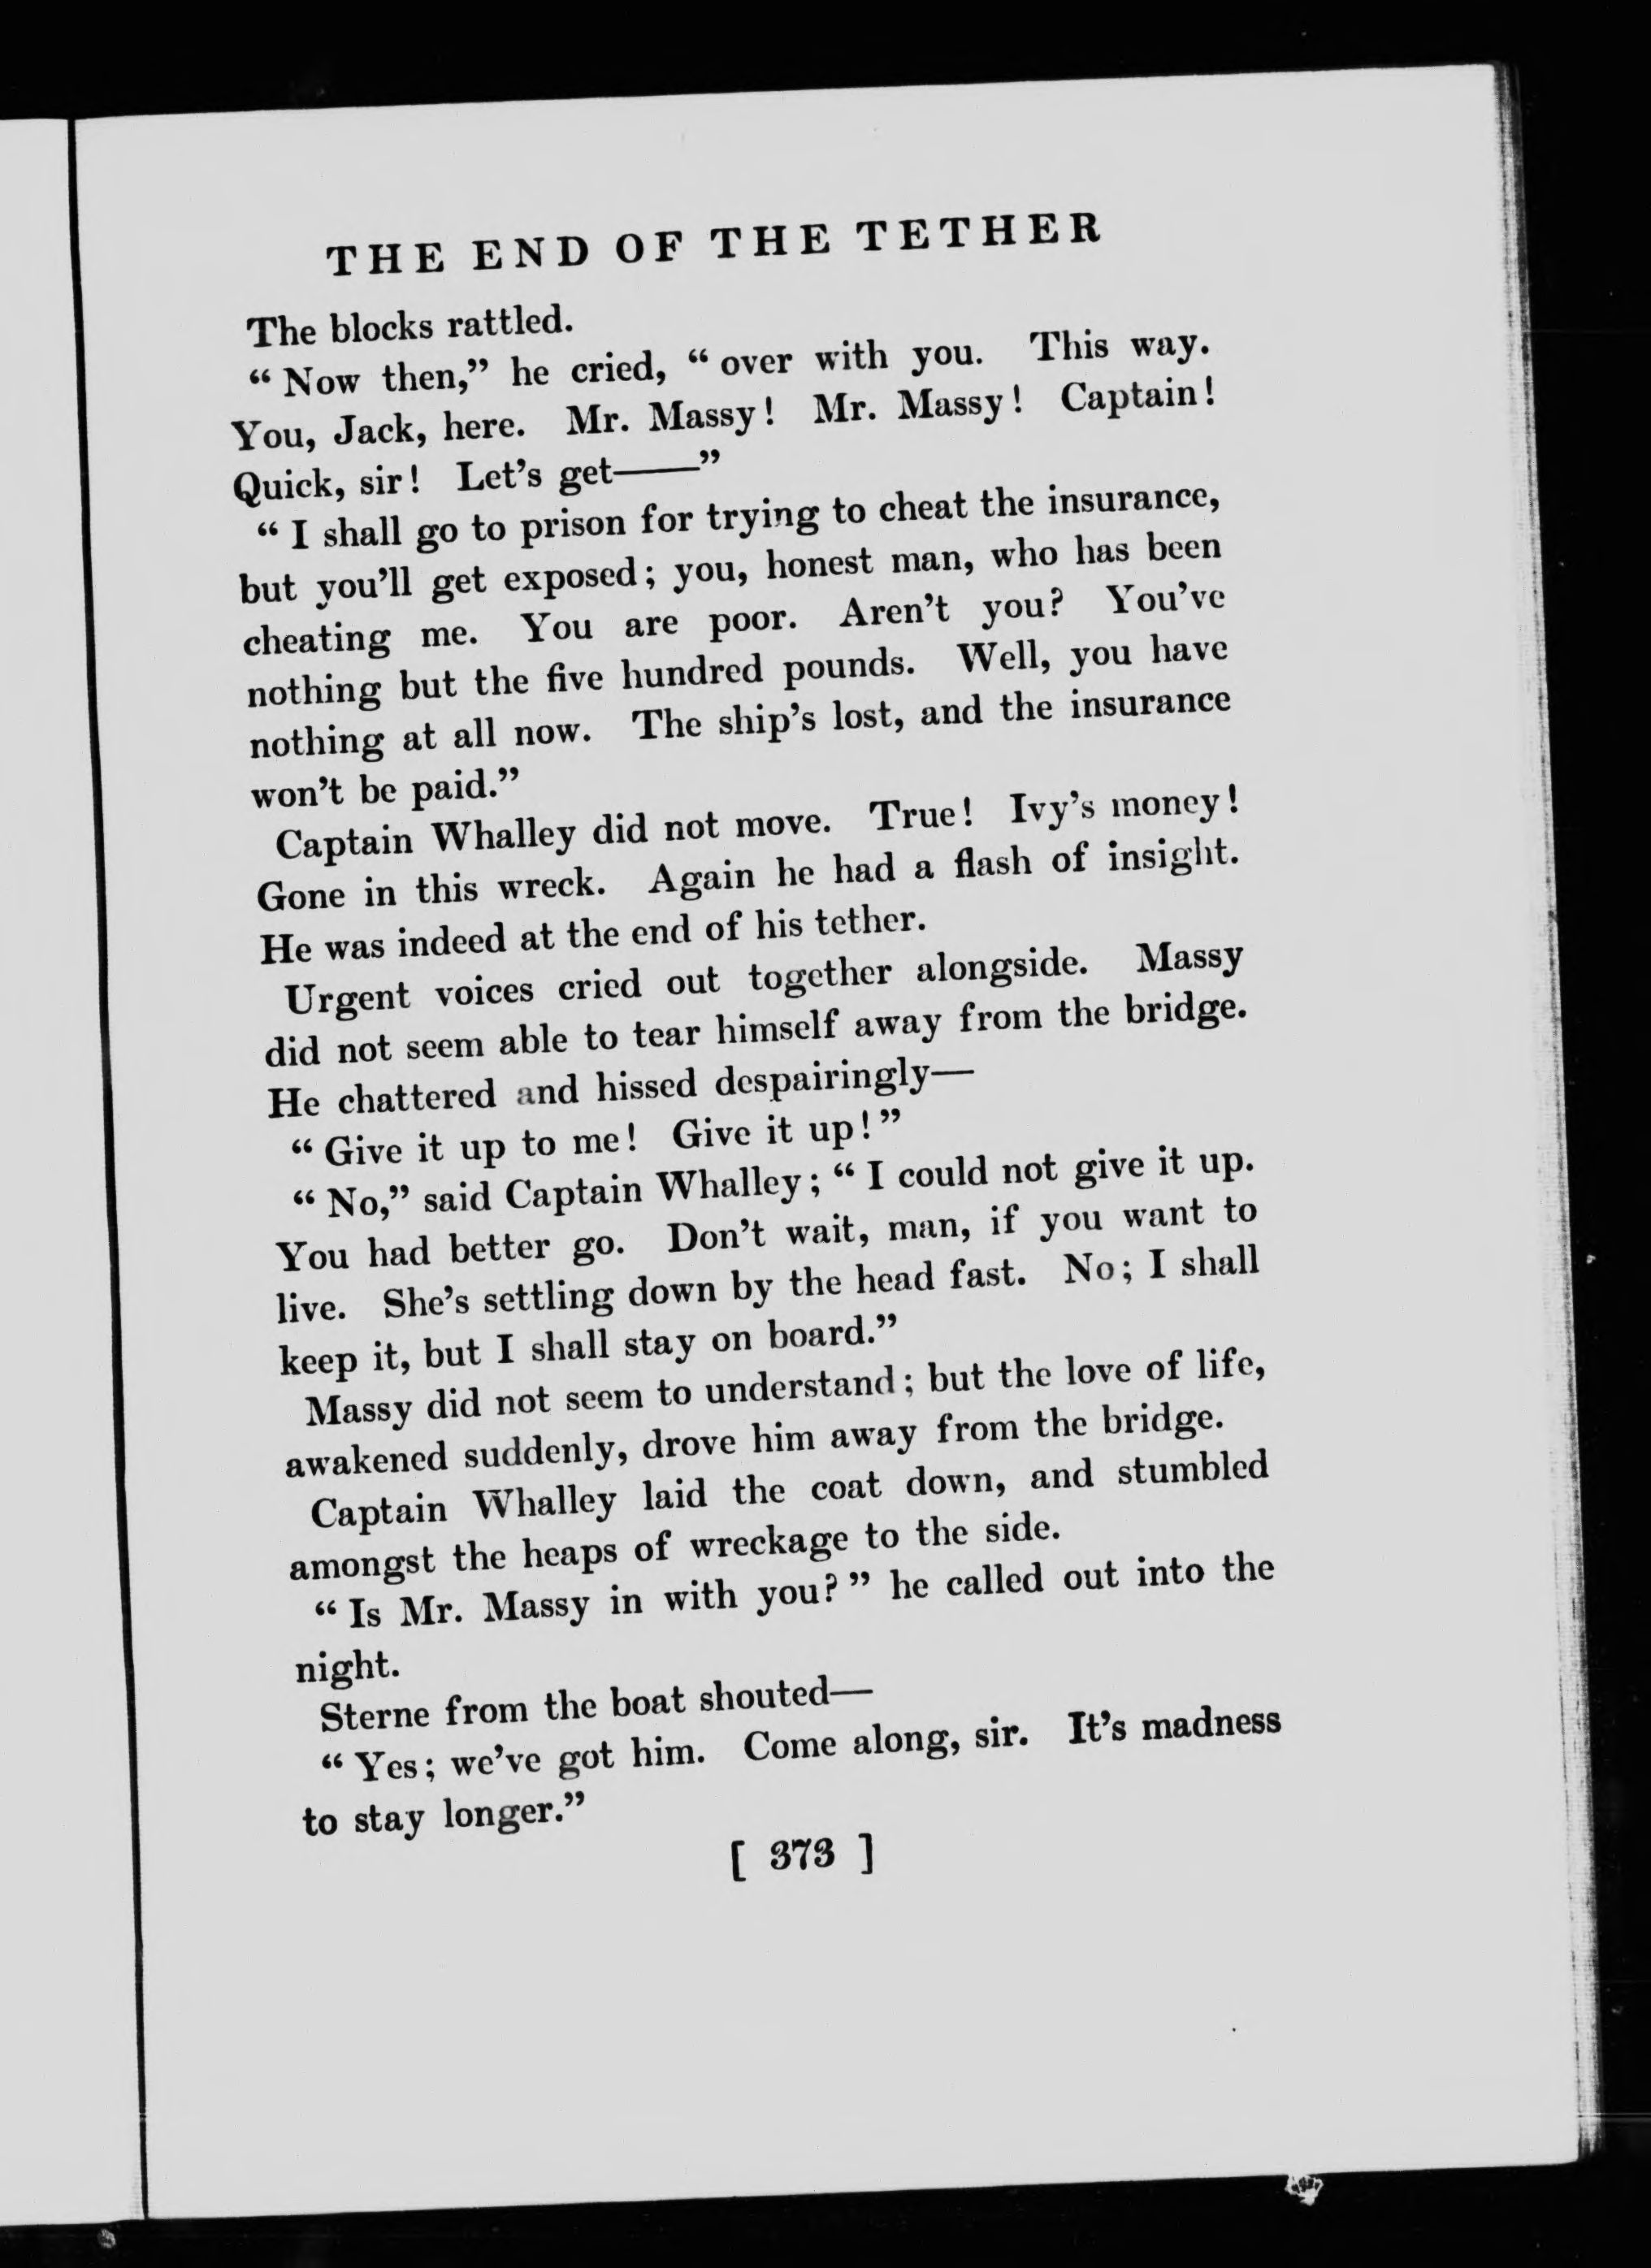 THE END OF THE TETHER
The blocks rattled.
“ Now then,” he cried, “ over with you. This way.
You, Jack, here. Mr. Massy! Mr. Massy! Captain!
Quick, sir! Let’s get——”
“ I shall go to prison for trying to cheat the insurance,
but you’ll get exposed; you, honest man, who has been
cheating me. You are poor. Aren’t you? You’ve
nothing but the five hundred pounds. Well, you have
nothing at all now. The ship’s lost, and the insurance
won’t be paid.”
Captain Whalley did not move. True! Ivy’s money!
Gone in this wreck. Again he had a flash of insight.
He was indeed at the end of his tether.
Urgent voices cried out together alongside. Massy
did not seem able to tear himself away from the bridge.
He chattered and hissed despairingly—
“ Give it up to me! Give it up!”
“ No,” said Captain Whalley; “ I could not give it up.
You had better go. Don’t wait, man, if you want to
live. She’s settling down by the head fast. No; I shall
keep it, but I shall stay on board.”
Massy did not seem to understand; but the love of life,
awakened suddenly, drove him away from the bridge.
Captain Whalley laid the coat down, and stumbled
amongst the heaps of wreckage to the side.
“ Is Mr. Massy in with you? ” he called out into the
night.
Sterne from the boat shouted—
“ Yes; we’ve got him. Come along, sir. It’s madness
to stay longer.”
[ 373 ]